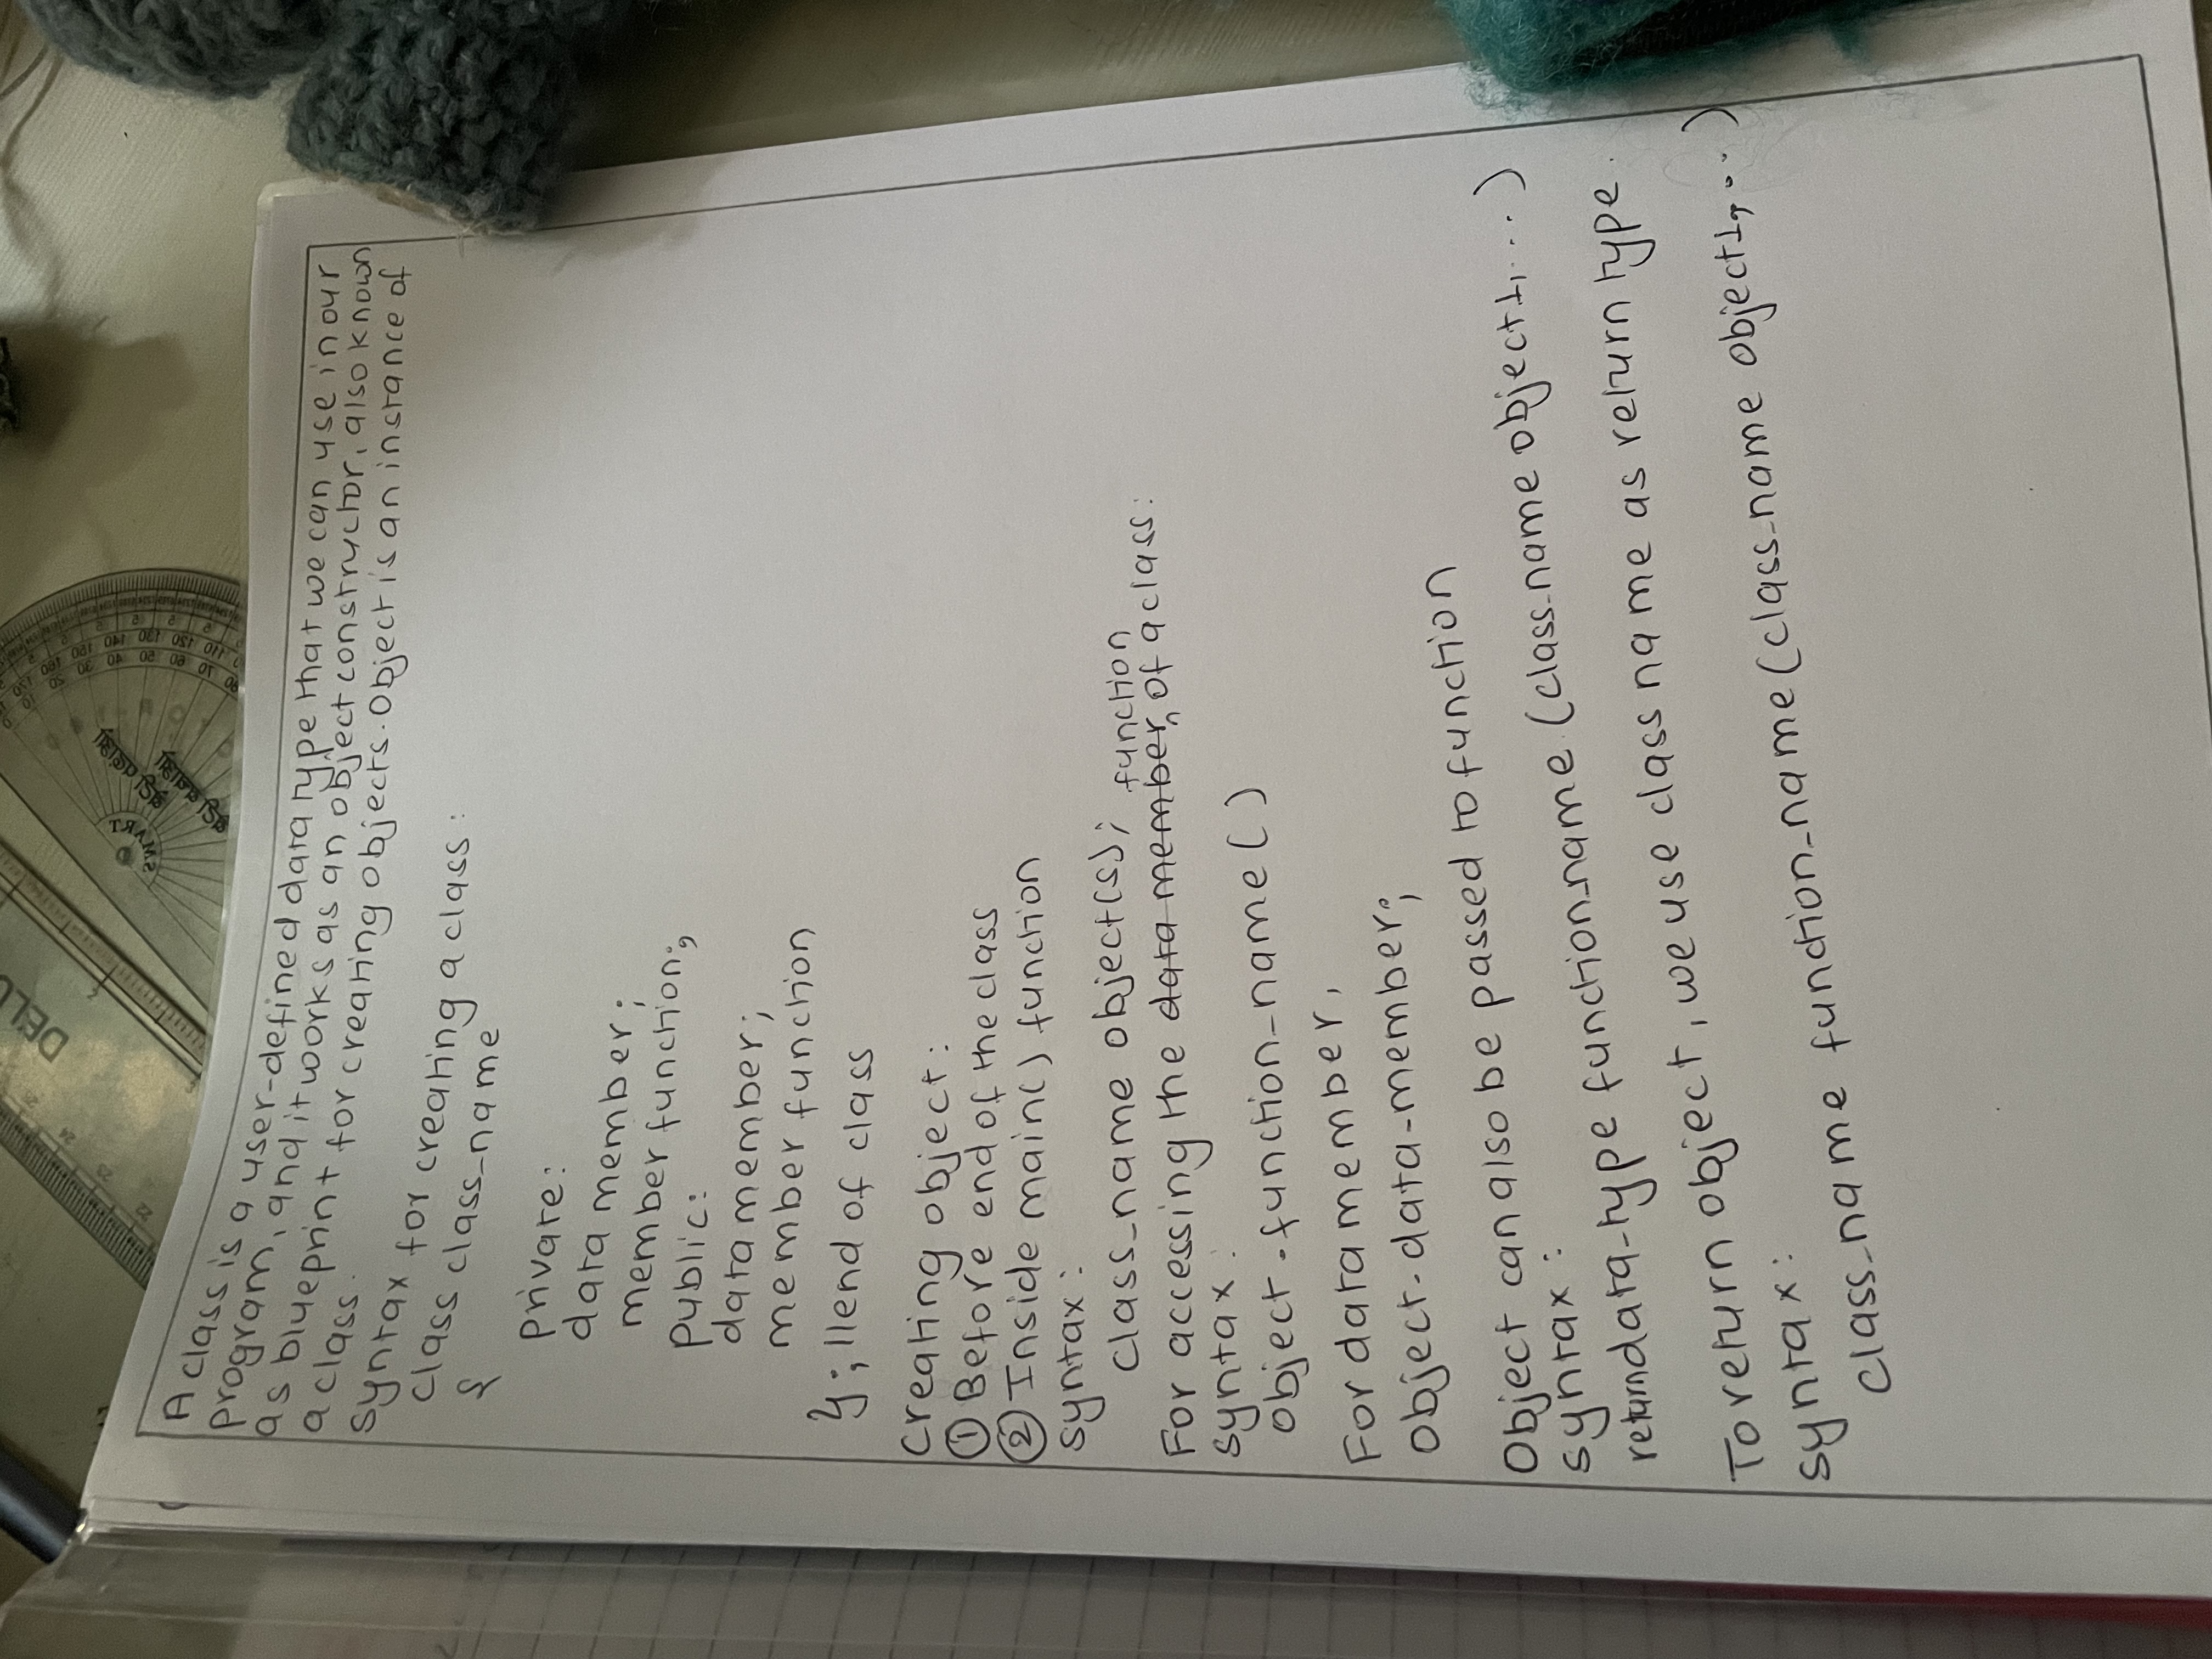 DELU
22
23
24
25
SMART
A class is a user-defined data type that we can use in our
program, and it works as an object constructor, also known
as blueprint for creating objects. Object is an instance of
a class.
syntax for creating a class:
class class_name
{
private:
data member;
member function;
public:
data member;
member function
}; //end of class
creating object:
① Before end of the class
② Inside main() function
syntax:
class_name object(s);
function
For accessing the data member of a class:
syntax:
object.function_name()
For data member,
object.data-member;
Object can also be passed to function
syntax:
returndata_type function_name (class_name object1, ...)
To return object, we use class name as return type.
syntax:
class_name function_name(class_name object1, ...)